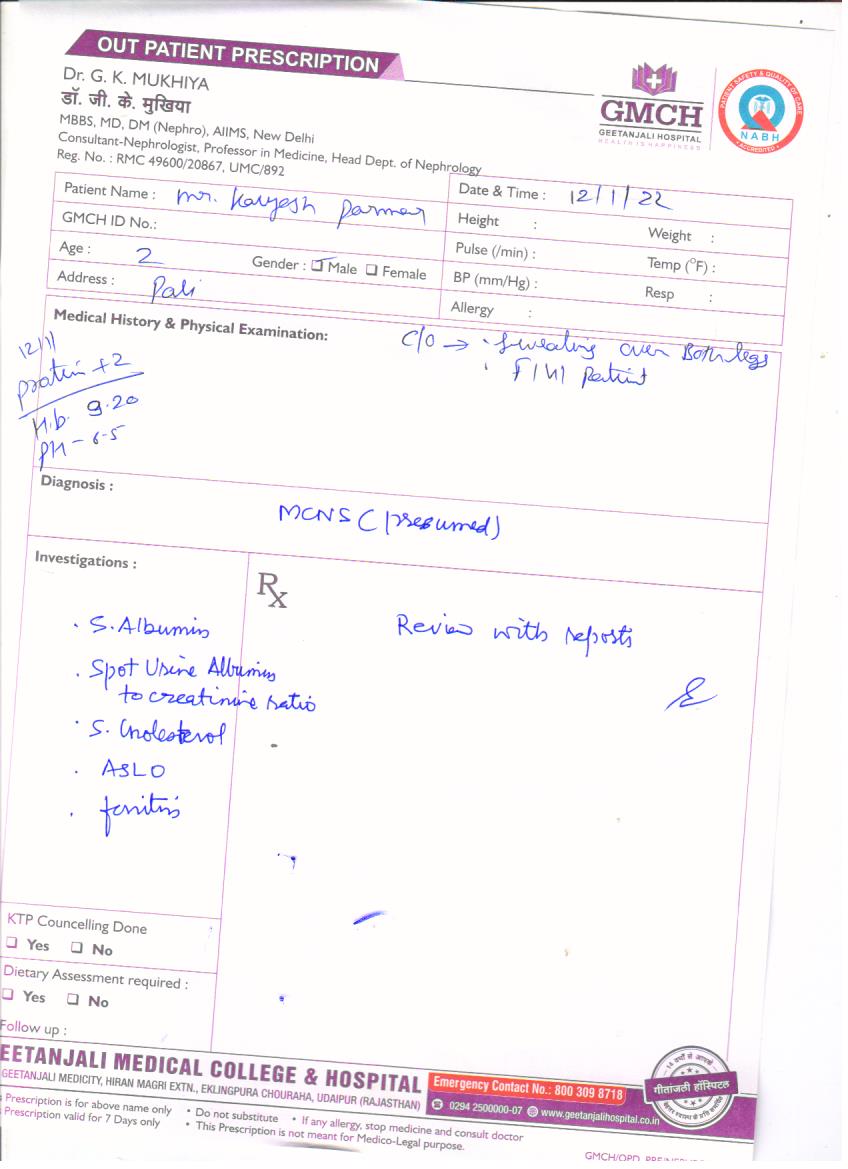 OUT PATIENT PRESCRIPTION
Dr. G. K. MUKHIYA
डॉ. जी. के. मुखिया
MBBS, MD, DM (Nephro), AIIMS, New Delhi
Consultant-Nephrologist, Professor in Medicine, Head Dept. of Nephrology
Reg. No. : RMC 49600/20867, UMC/892
GMCH
GEETANJALI HOSPITAL
HEALTH IS HAPPINESS
PATIENT SAFETY & QUALITY OF CARE
NABH
ACCREDITED
Patient Name : Mr. Parmar
Date & Time : 12/1/22
GMCH ID No.:
Height :
Weight :
Age : 2
Gender : Male Female
Pulse (/min) :
Temp (°F) :
Address : Pali
BP (mm/Hg) :
Resp :
Allergy :
Medical History & Physical Examination:
C/O → over Both legs
patient
12/1/
protein +2
H.b. 9.20
PH - 6-5
Diagnosis :
MCNS (presumed)
Investigations :
Rx
. S. Albumin
. Spot Urine Albumin
to creatinine ratio
. S. Cholesterol
. ASLO
. ferritin
Review with reports
KTP Councelling Done
Yes No
Dietary Assessment required :
Yes No
Follow up :
EETANJALI MEDICAL COLLEGE & HOSPITAL
GEETANJALI MEDICITY, HIRAN MAGRI EXTN., EKLINGPURA CHOURAHA, UDAIPUR (RAJASTHAN)
Emergency Contact No.: 800 309 8718
0294 2500000-07 www.geetanjalihospital.co.in
गीतांजली हॉस्पिटल
Prescription is for above name only • Do not substitute • If any allergy, stop medicine and consult doctor
Prescription valid for 7 Days only • This Prescription is not meant for Medico-Legal purpose.